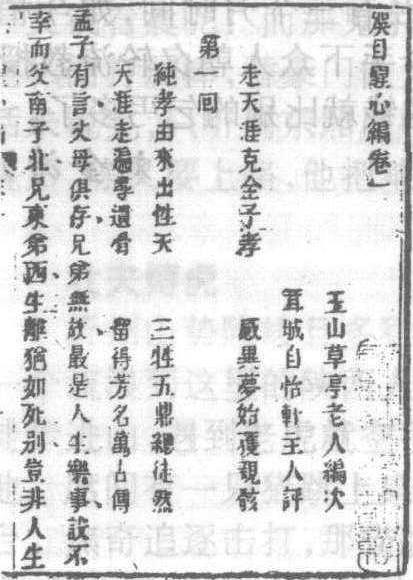 娛目醒心編卷一
玉山草亭老人編次
茸城自怡軒主人評
走天涯克全子孝　感異夢始獲親骸
第一回
純孝由來出性天　三牲五鼎總徒然
天涯走遍尋遺骨　留得芳名萬古傳
孟子有言父母俱存兄弟無故最是人生樂事設不
幸而父南子北兄東弟西生離猶如死別豈非人生